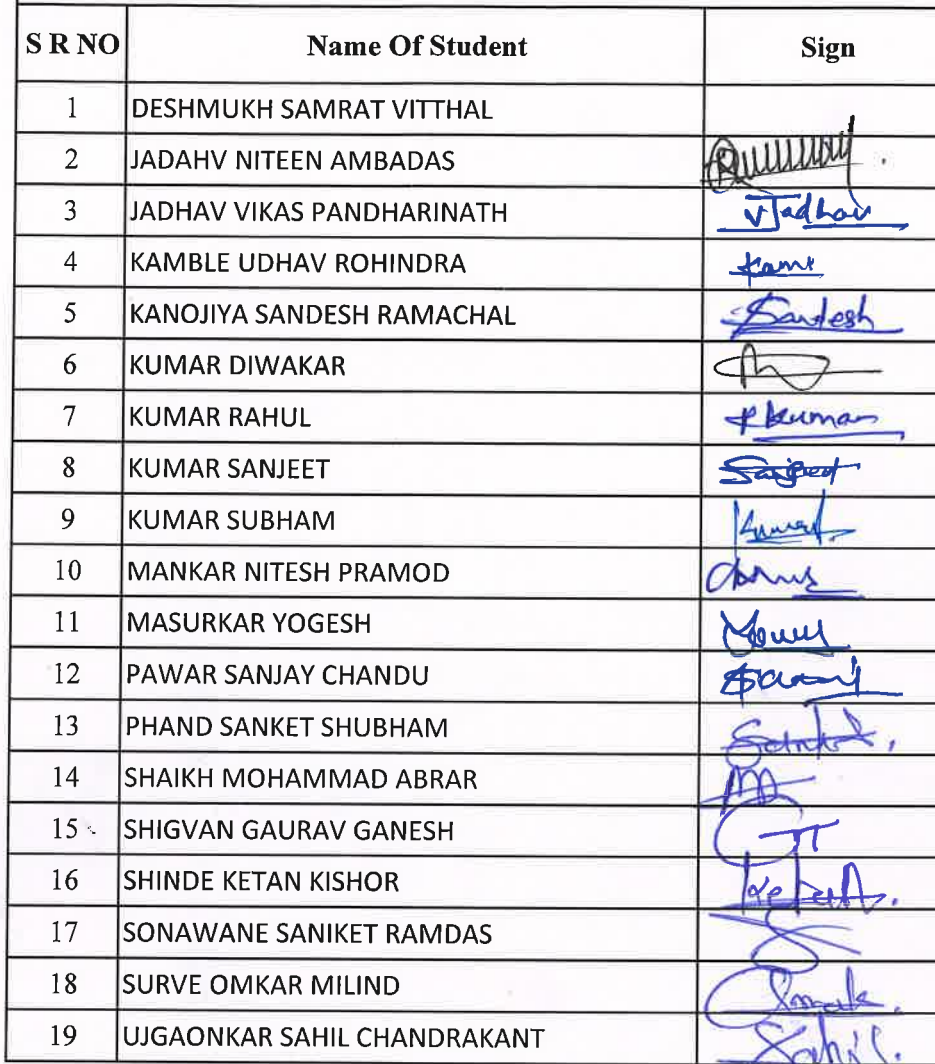 S R NO Name Of Student Sign
1 DESHMUKH SAMRAT VITTHAL
2 JADAHV NITEEN AMBADAS
3 JADHAV VIKAS PANDHARINATH VJadhav
4 KAMBLE UDHAV ROHINDRA
5 KANOJIYA SANDESH RAMACHAL Sandesh
6 KUMAR DIWAKAR
7 KUMAR RAHUL RKumar
8 KUMAR SANJEET Sanjeet
9 KUMAR SUBHAM
10 MANKAR NITESH PRAMOD
11 MASURKAR YOGESH
12 PAWAR SANJAY CHANDU
13 PHAND SANKET SHUBHAM
14 SHAIKH MOHAMMAD ABRAR
15 SHIGVAN GAURAV GANESH
16 SHINDE KETAN KISHOR
17 SONAWANE SANIKET RAMDAS
18 SURVE OMKAR MILIND
19 UJGAONKAR SAHIL CHANDRAKANT Sahil.